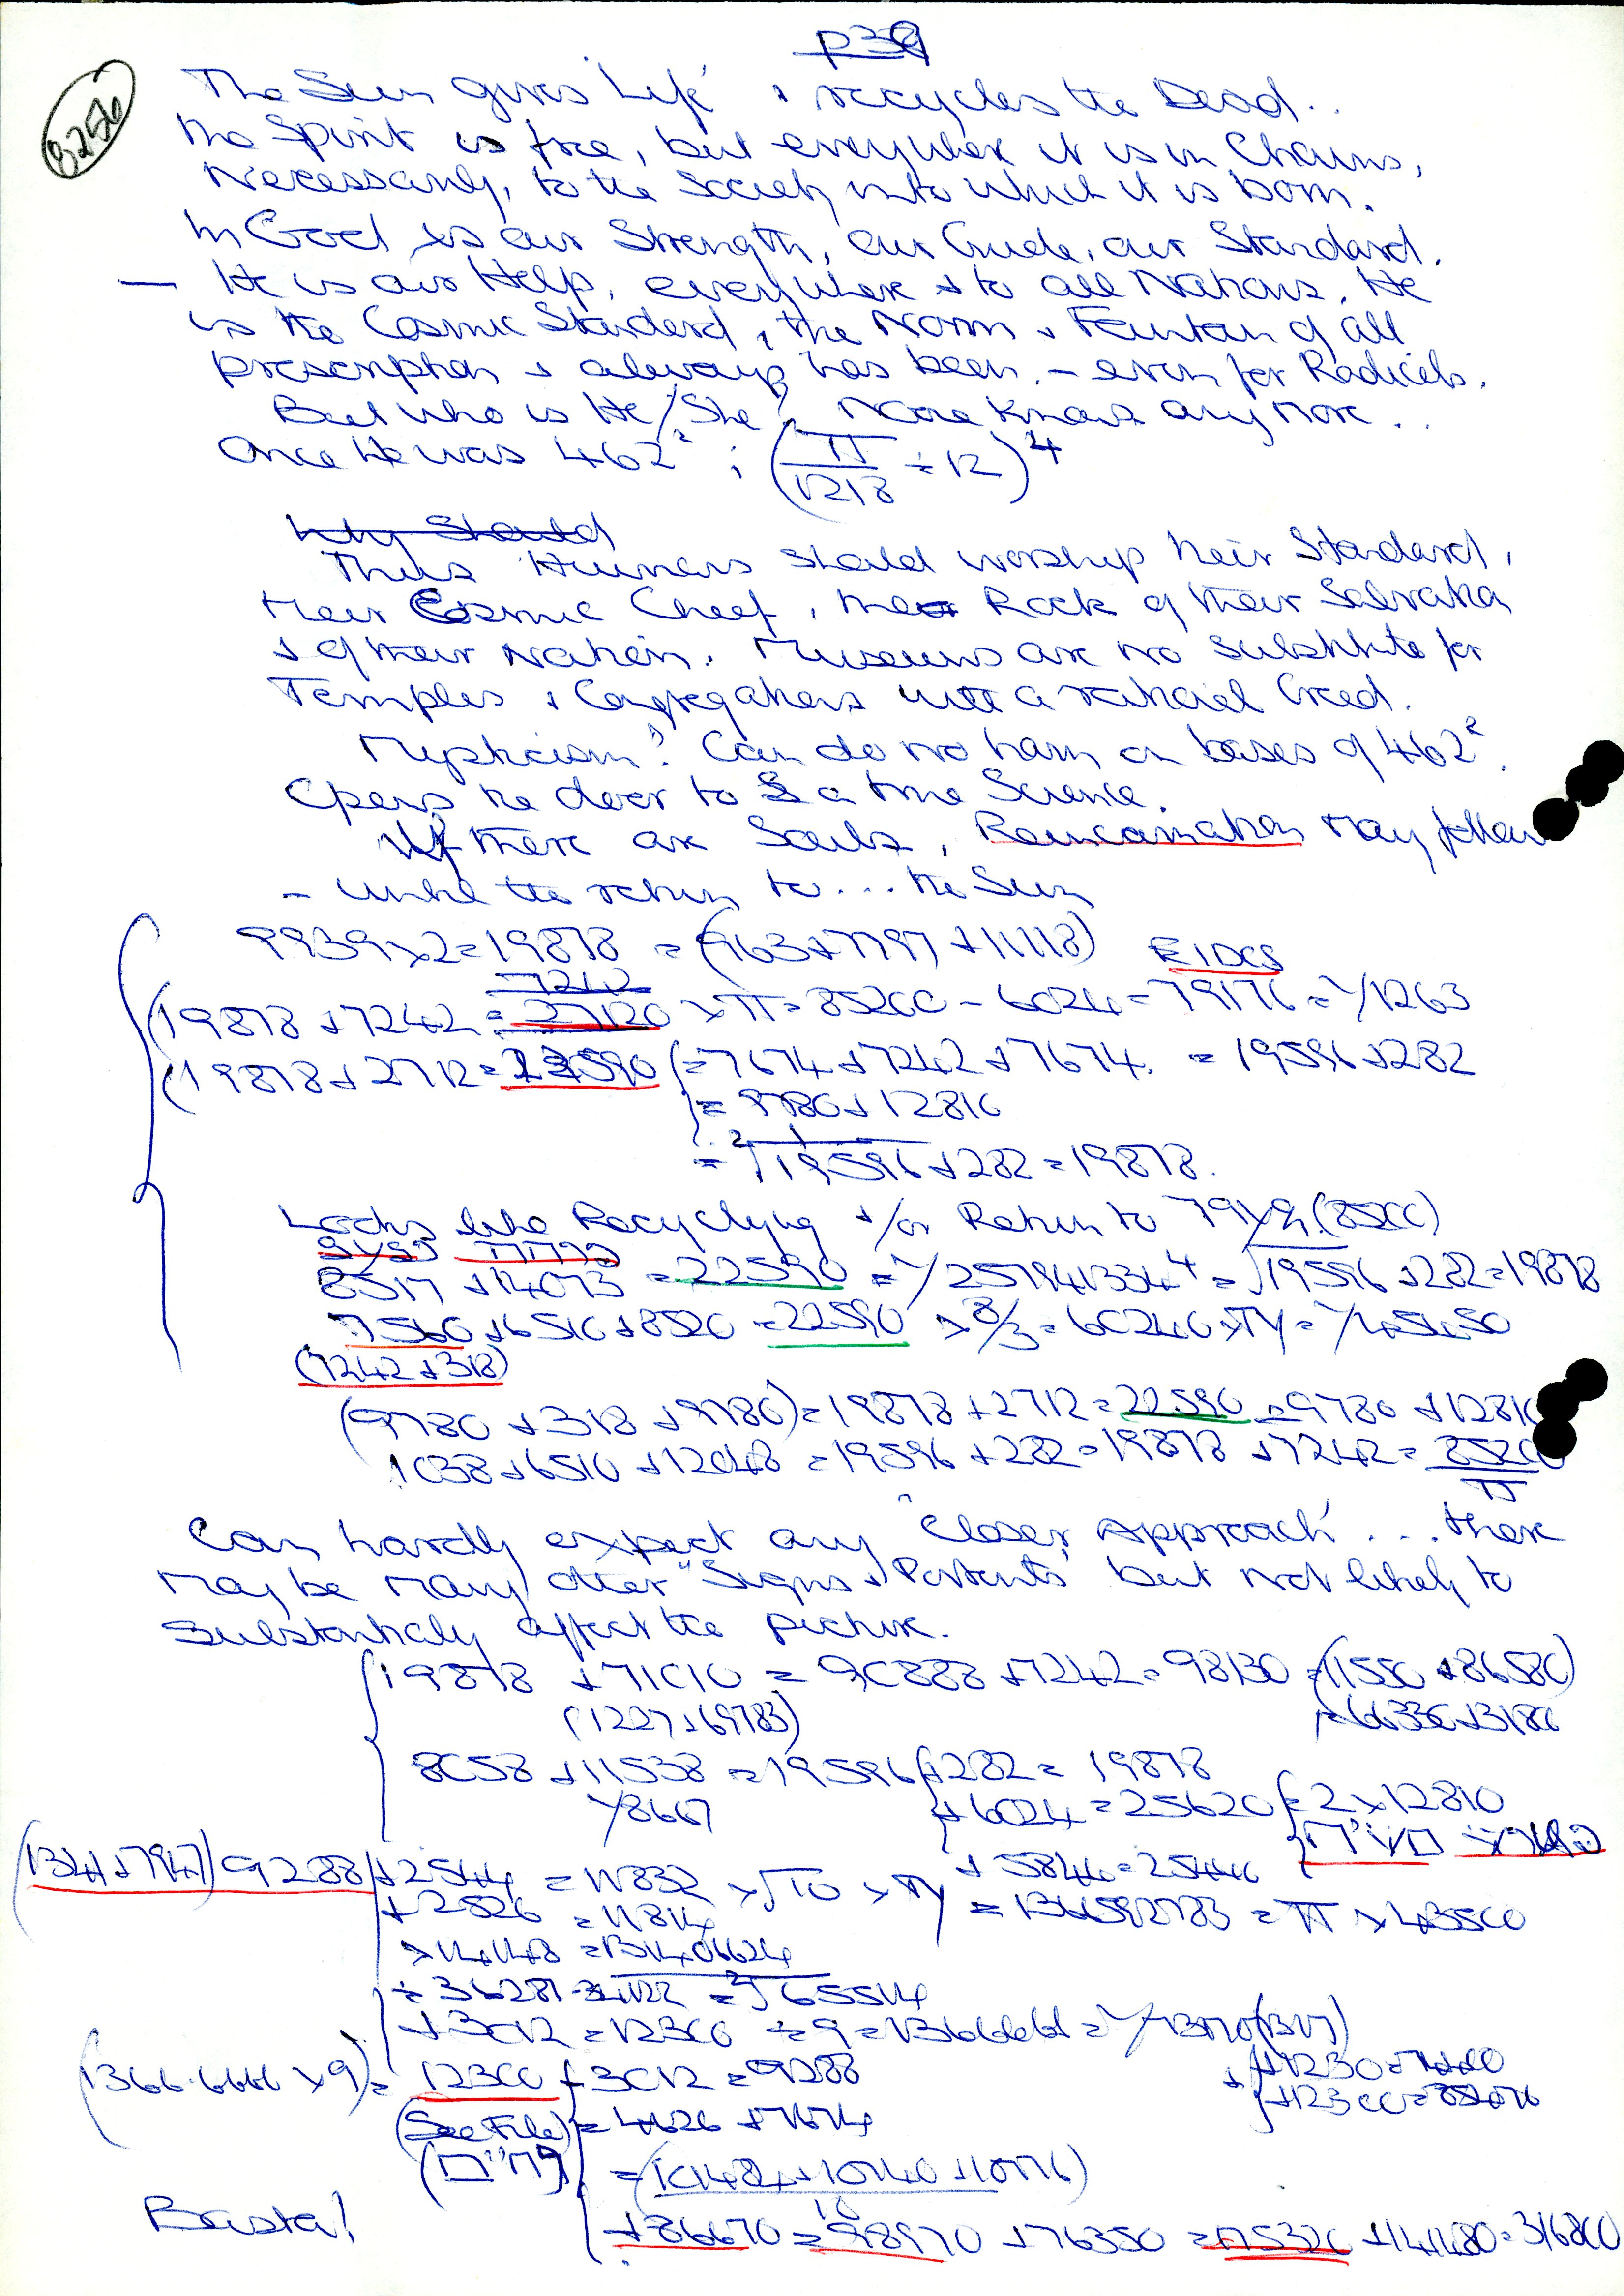 p39
8256
The Sun gives 'Life' & recycles the Dead..
The Spirit is free, but everywhere it is in Chains,
Necessarily, to the Society into which it is born.
In God is our Strength, our Guide, our Standard.
— He is our Help, everywhere & to all Nations. He
is the Cosmic Standard, the Norm & Fountain of all
prescription & always has been. - even for Radicals.
But who is He/She? None knows any more..
Once He was 462² ; (π/1218 ÷ 12)⁴
Why Should
Thus Humans should worship their Standard,
their Cosmic Chief, the Rock of their Salvation
& of their Nation. Museums are no substitute for
Temples & Congregations with a rational Creed.
Mysticism? Can do no harm on bases of 462².
Opens the door to a true Science.
If there are Souls, Reincarnation may follow
- until the return to... the Sun
9939 x 2 = 19878 = (963 + 7797 + 11118) EIDOS
7242
(19878 + 7242 = 27120 x π = 85200 - 6024 = 79176 = Y1263
(19878 + 2712 = 22590 (= 7674 + 7242 + 7674. = 19596 + 282
= 9780 + 12810
= 19596 + 282 = 19878.
Looks like Recycling &/or Return to (8520)
8517 + 14073 = 22590 = Y257941334⁴ = √19596 + 282 = 19878
7560 + 6510 + 8520 = 22590 x 8/3 = 60240
(7242 + 318)
(9780 + 318 + 9780) = 19878 + 2712 = 22590 = 9780 + 12810
1038 + 6510 + 12048 = 19596 + 282 = 19878 + 7242 = 85200/π
Can hardly expect any "Closer Approach"... there
may be many other "Signs & Portents" but not likely to
substantially affect the picture.
19878 + 71010 = 90888 + 7242 = 98130 = (11550 + 86580)
(1227 + 69783) = 66330 + 31800
8058 + 11538 = 19596 + 282 = 19878
Y8667 + 6024 = 25620 = 2 x 12810
(1341 + 7947) 9288 + 2544 = 11832 x √10 x = 136592783 = π x 43500
+ 5844 = 25440
+ 2526 = 11814
x 14148 = 131406624
+ 3012 = 12300 ÷ 9 = 1366666
(1366.6666 x 9) = 12300 - 3012 = 9288
(See File) = 4626 + 7674
Basta!
+ 86670 = 98970 + 76350 = 175320 + 141480 = 316800